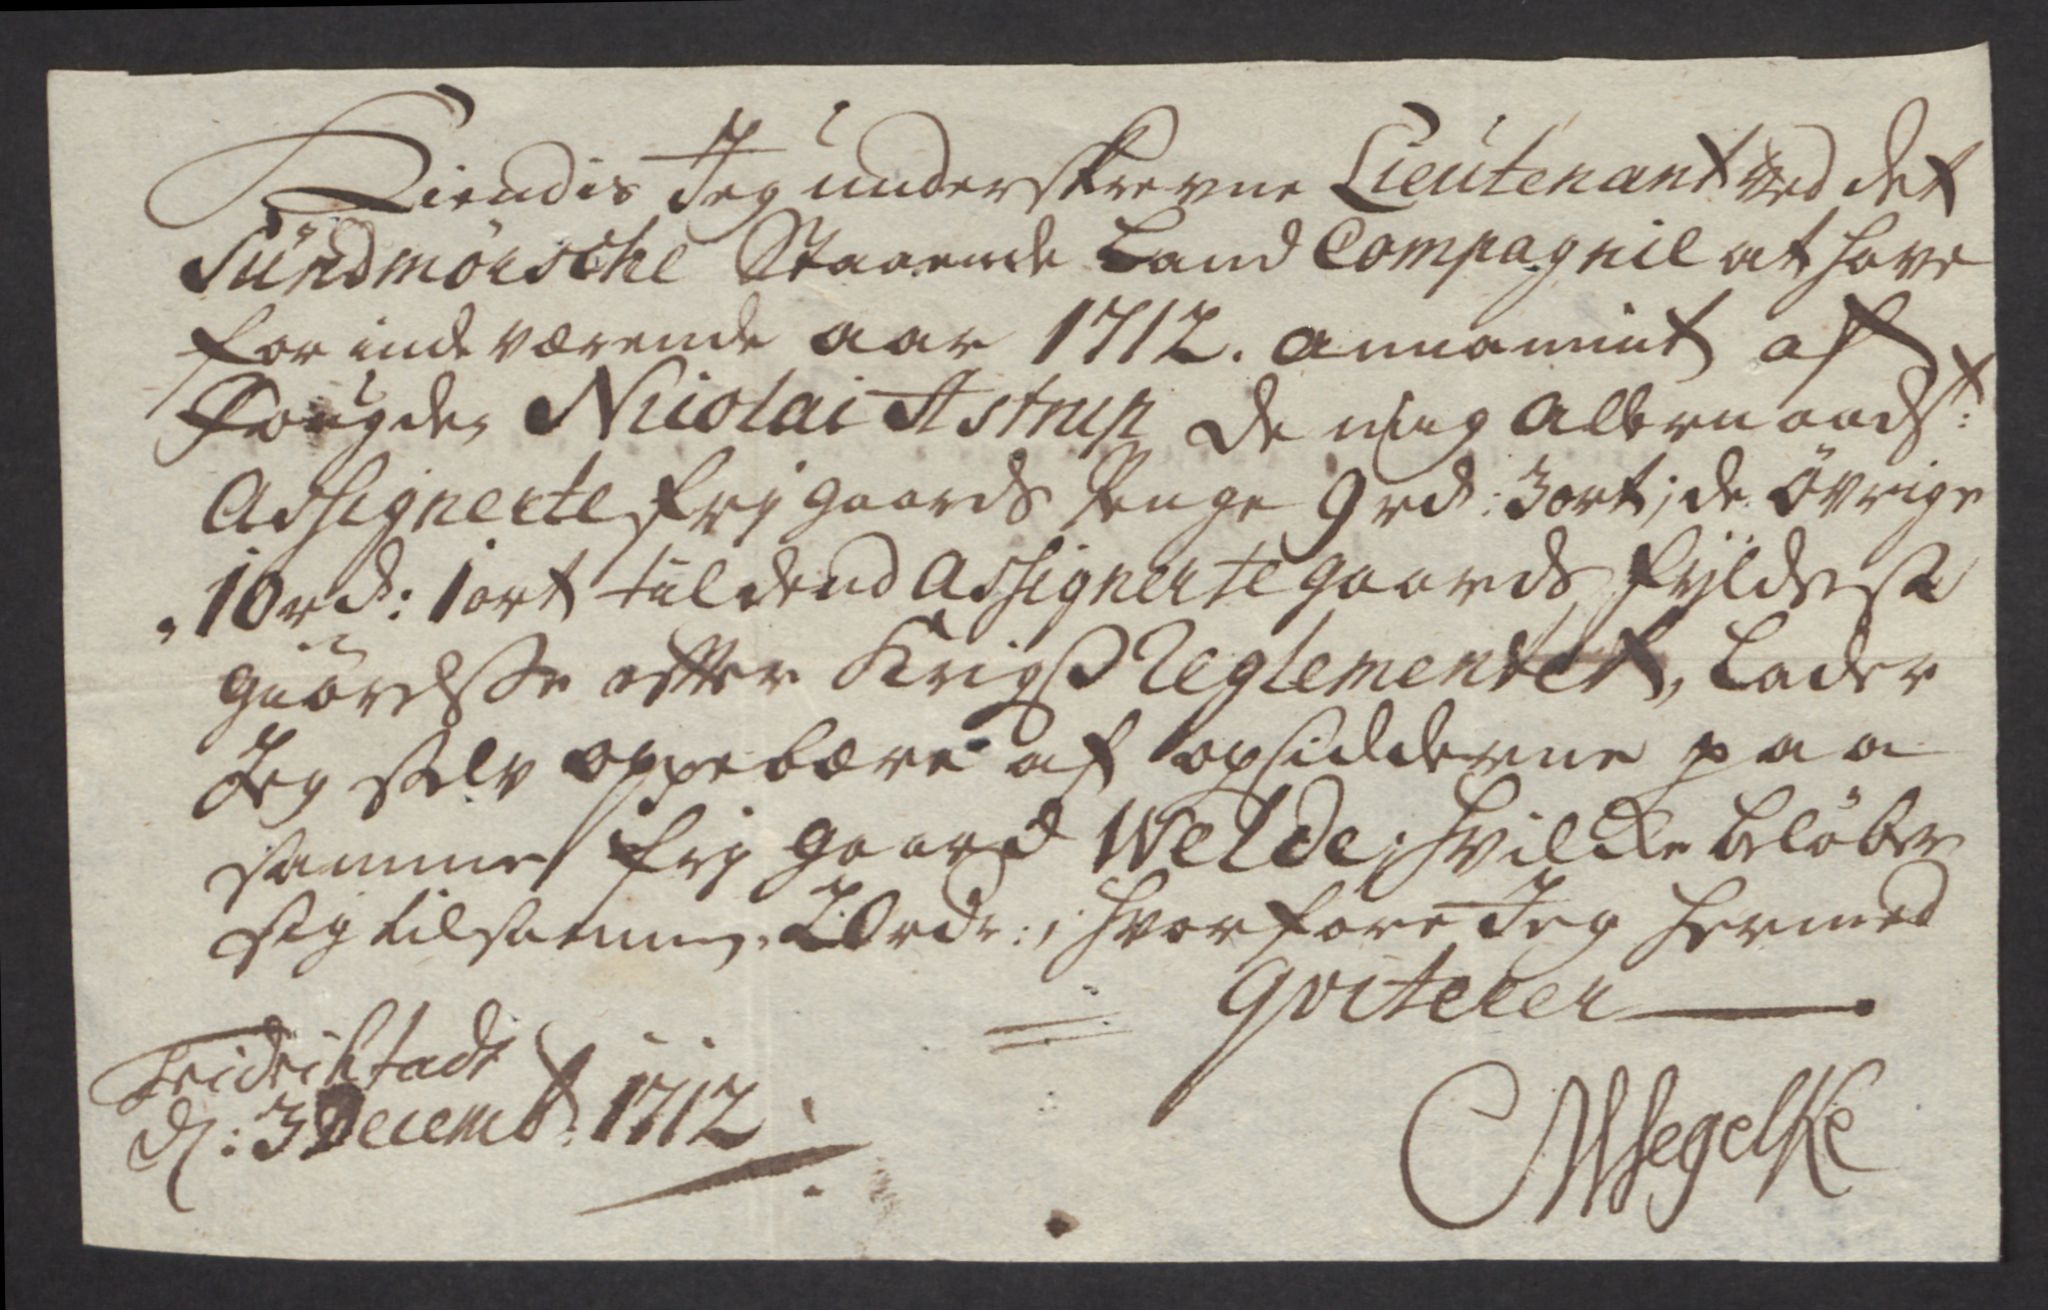 Kiendis Jeg underskrevne Lieutenant ved det
Sündmörsche Staaende Land Compagnie at have
for inde værende aar 1712. annammet af
Fougden Nicolai Astrup de mig allernaadst:
Assignerte frj gaards Penge 9 rd: 3 ort; de övrige
10 rd: 1 ort til dend Assignerte gaards fyldest
giörelsse efter Krigs Reglementet, Lader
Jeg selv oppebære af opsidderne paa
samme frj gaard Welde; hvilcke belöber
sig tilsammen 20 rdr:; hvorfore Jeg hermed
Qviterer
Fridrichstadt
d: 3 Decemb: 1712
Segelke